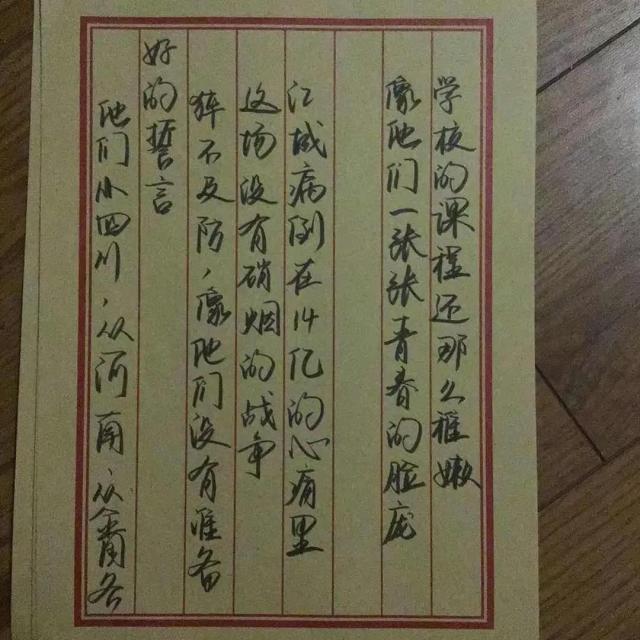 学校的课程还那么稚嫩
像他们一张张青春的脸庞
江城病例在14亿的心痛里
这场没有硝烟的战争
猝不及防，像他们没有准备
好的誓言
他们从四川，从河南，从全国各